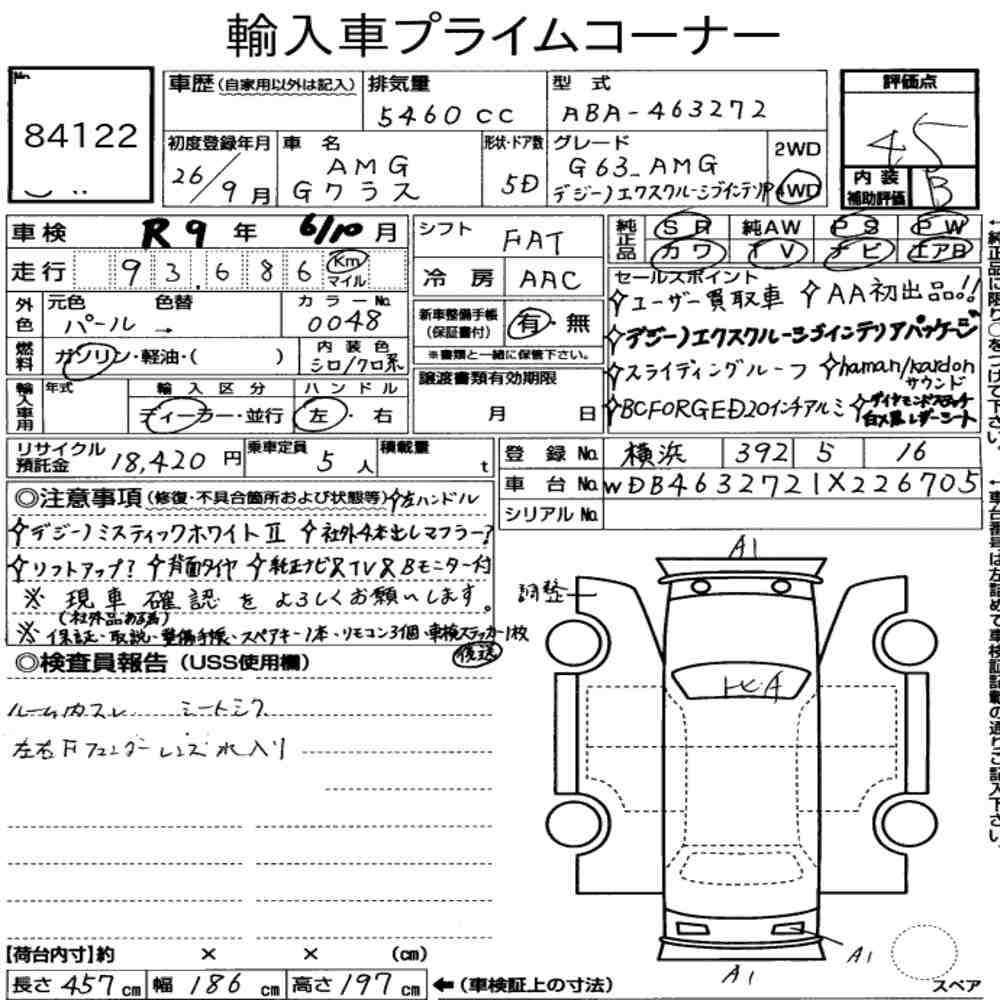 輸入車プライムコーナー
No.
84122
車歴 (自家用以外は記入)
排気量
5460 cc
型式
ABA-463272
評価点
4.5
初度登録年月
26/9 月
車名
AMG
Gクラス
形状・ドア数
5D
グレード
G63_AMG
デジーノエクスクルーシブインテリP
2WD
4WD
内装
補助評価
B
車検 R9 年 6/10 月
走行 93,686 Km
マイル
外色
元色
パール →
色替
カラーNo.
0048
燃料
ガソリン・軽油・( )
内装色
シロ/クロ系
輸入車用
年式
輸入区分
ディーラー・並行
ハンドル
左・右
シフト FAT
冷房 AAC
新車整備手帳
(保証書付)
有・無
※書類と一緒に保管下さい。
譲渡書類有効期限
月 日
純正品
SR 純AW PS PW
カワ TV ナビ エアB
セールスポイント
ユーザー買取車 AA初出品!!
デジーノエクスクルーシブインテリアパッケージ
スライディングルーフ haman/kardon
サウンド
BCFORGED20インチアルミ ダイヤモンドステッチ
白×黒レザーシート
リサイクル
預託金
18,420 円
乗車定員
5 人
積載量
t
登録No. 横浜 392 5 16
車台No. WDB4632721X226705
シリアルNo.
◎注意事項(修復・不具合箇所および状態等) 左ハンドル
デジーノミスティックホワイトⅡ 社外4本出しマフラー?
リフトアップ? 背面タイヤ 純正ナビ&TV&Bモニター付
※ 現車確認をよろしくお願いします。
(社外品ある為)
※ 保証、取説、整備手帳、スペアキー1本、リモコン3個、車検ステッカー1枚
後送
◎検査員報告 (USS使用欄)
ルーム内スレ シートシワ
左右Fフェンダーレンズ水入り
A1
調整
トビA
A1
A1
スペア
【荷台内寸】約 × × (cm)
長さ 457 cm 幅 186 cm 高さ 197 cm ←(車検証上の寸法)
←純正品に限り○をつけて下さい。
←車台番号は左詰めで車検証記載の通りご記入下さい。